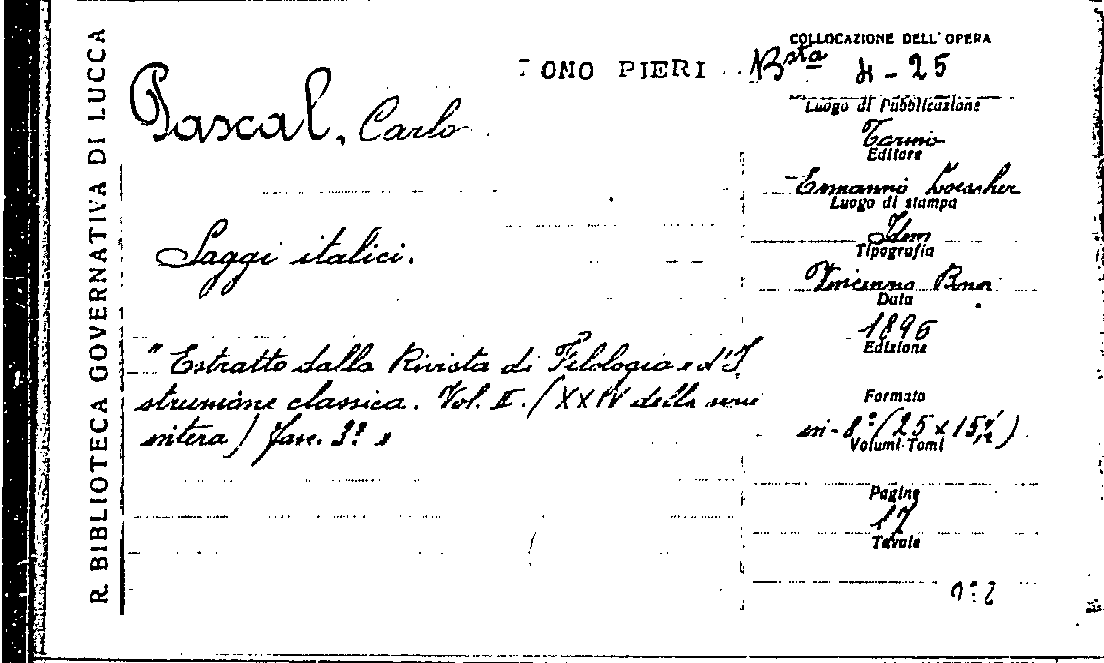 R. BIBLIOTECA GOVERNATIVA DI LUCCA
ONO PIERI
COLLOCAZIONE DELL'OPERA
Bsta 4-25
Pascal, Carlo
Luogo di Pubblicazione
Torino
Editore
Ermanno Loescher
Luogo di stampa
Idem
Tipografia
Vincenzo Bona
Data
1896
Edizione
Saggi italici.
"Estratto dalla Rivista di Filologia e d'I
struzione classica. Vol. II. (XXIV della serie
intera) fasc. 3º"
Formato
in-8º (25 x 15½)
Volumi-Tomi
Pagine
17
Tavole